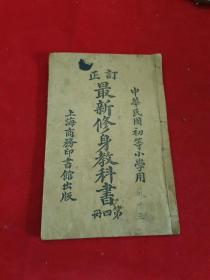 中華民國初等小學用
訂正
最新修身教科書
第四冊
上海商務印書館出版